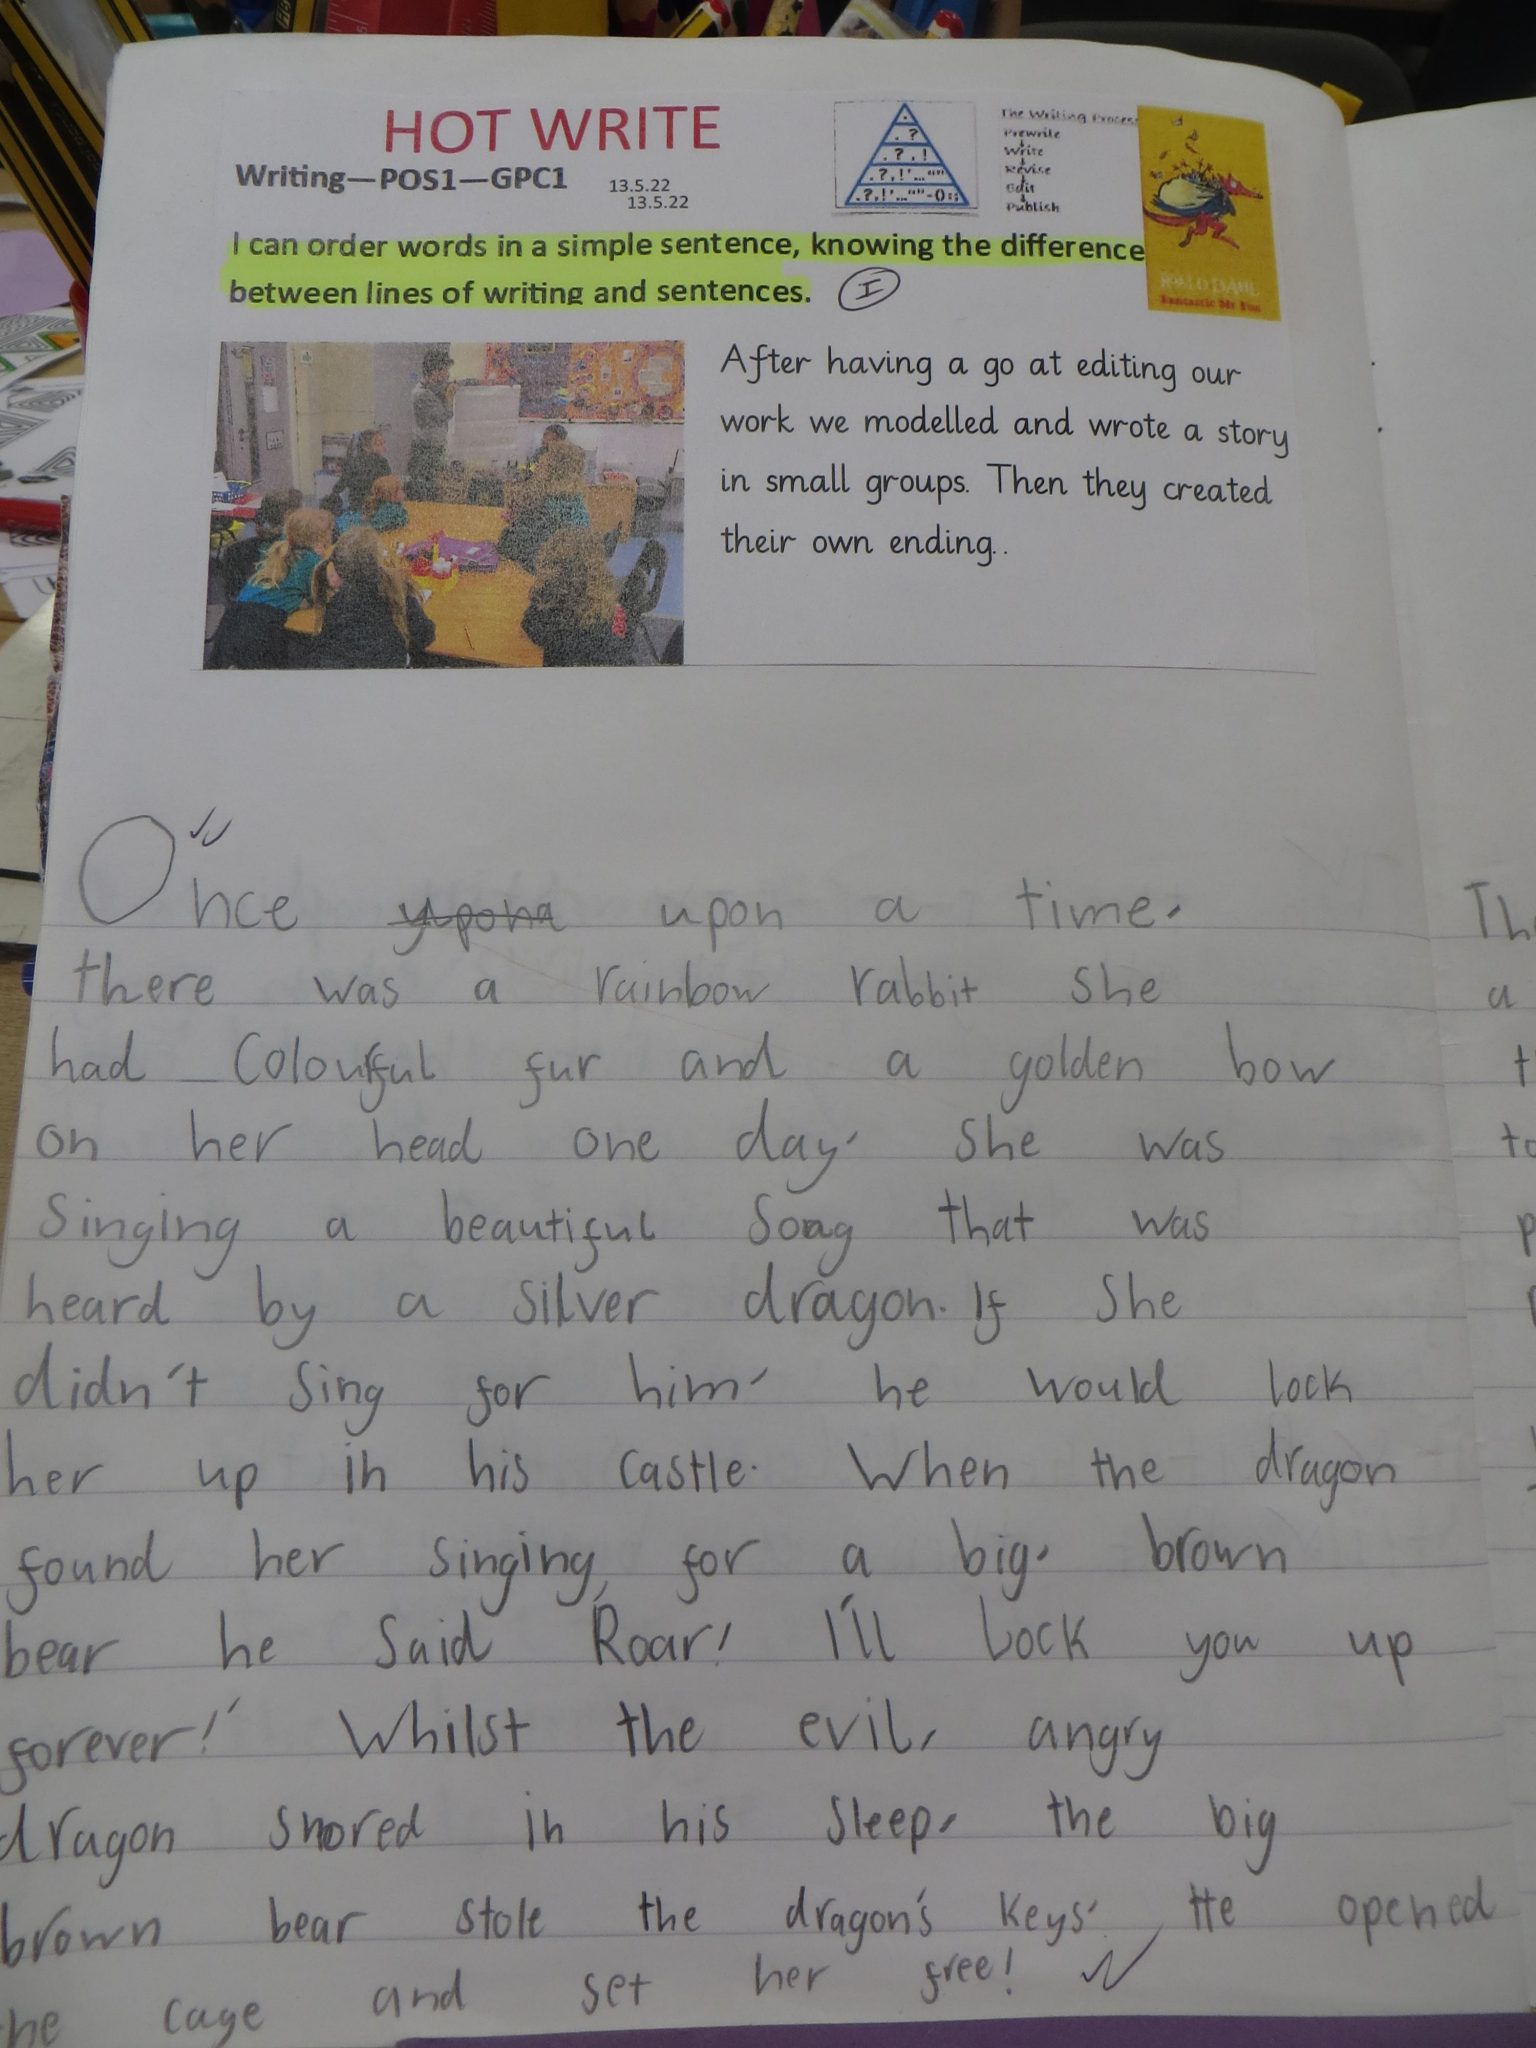 HOT WRITE
Writing—POS1—GPC1
13.5.22
13.5.22
.
. ?
. ? , !
. ? , ! ' ... " "
. ? , ! ' ... " " - () : ;
The Writing Process
Prewrite
Write
Revise
Edit
Publish
ROALD DAHL
Fantastic Mr Fox
I can order words in a simple sentence, knowing the difference
between lines of writing and sentences. I
After having a go at editing our
work we modelled and wrote a story
in small groups. Then they created
their own ending..
Once upon a time,
there was a rainbow rabbit she
had colourful fur and a golden bow
on her head one day, she was
singing a beautiful song that was
heard by a silver dragon. If she
didn't sing for him, he would lock
her up in his castle. When the dragon
found her singing, for a big, brown
bear he said Roar! I'll Lock you up
forever!' Whilst the evil, angry
dragon snored in his sleep, the big
brown bear stole the dragon's keys. He opened
he cage and set her free!
Th
a
t
to
p